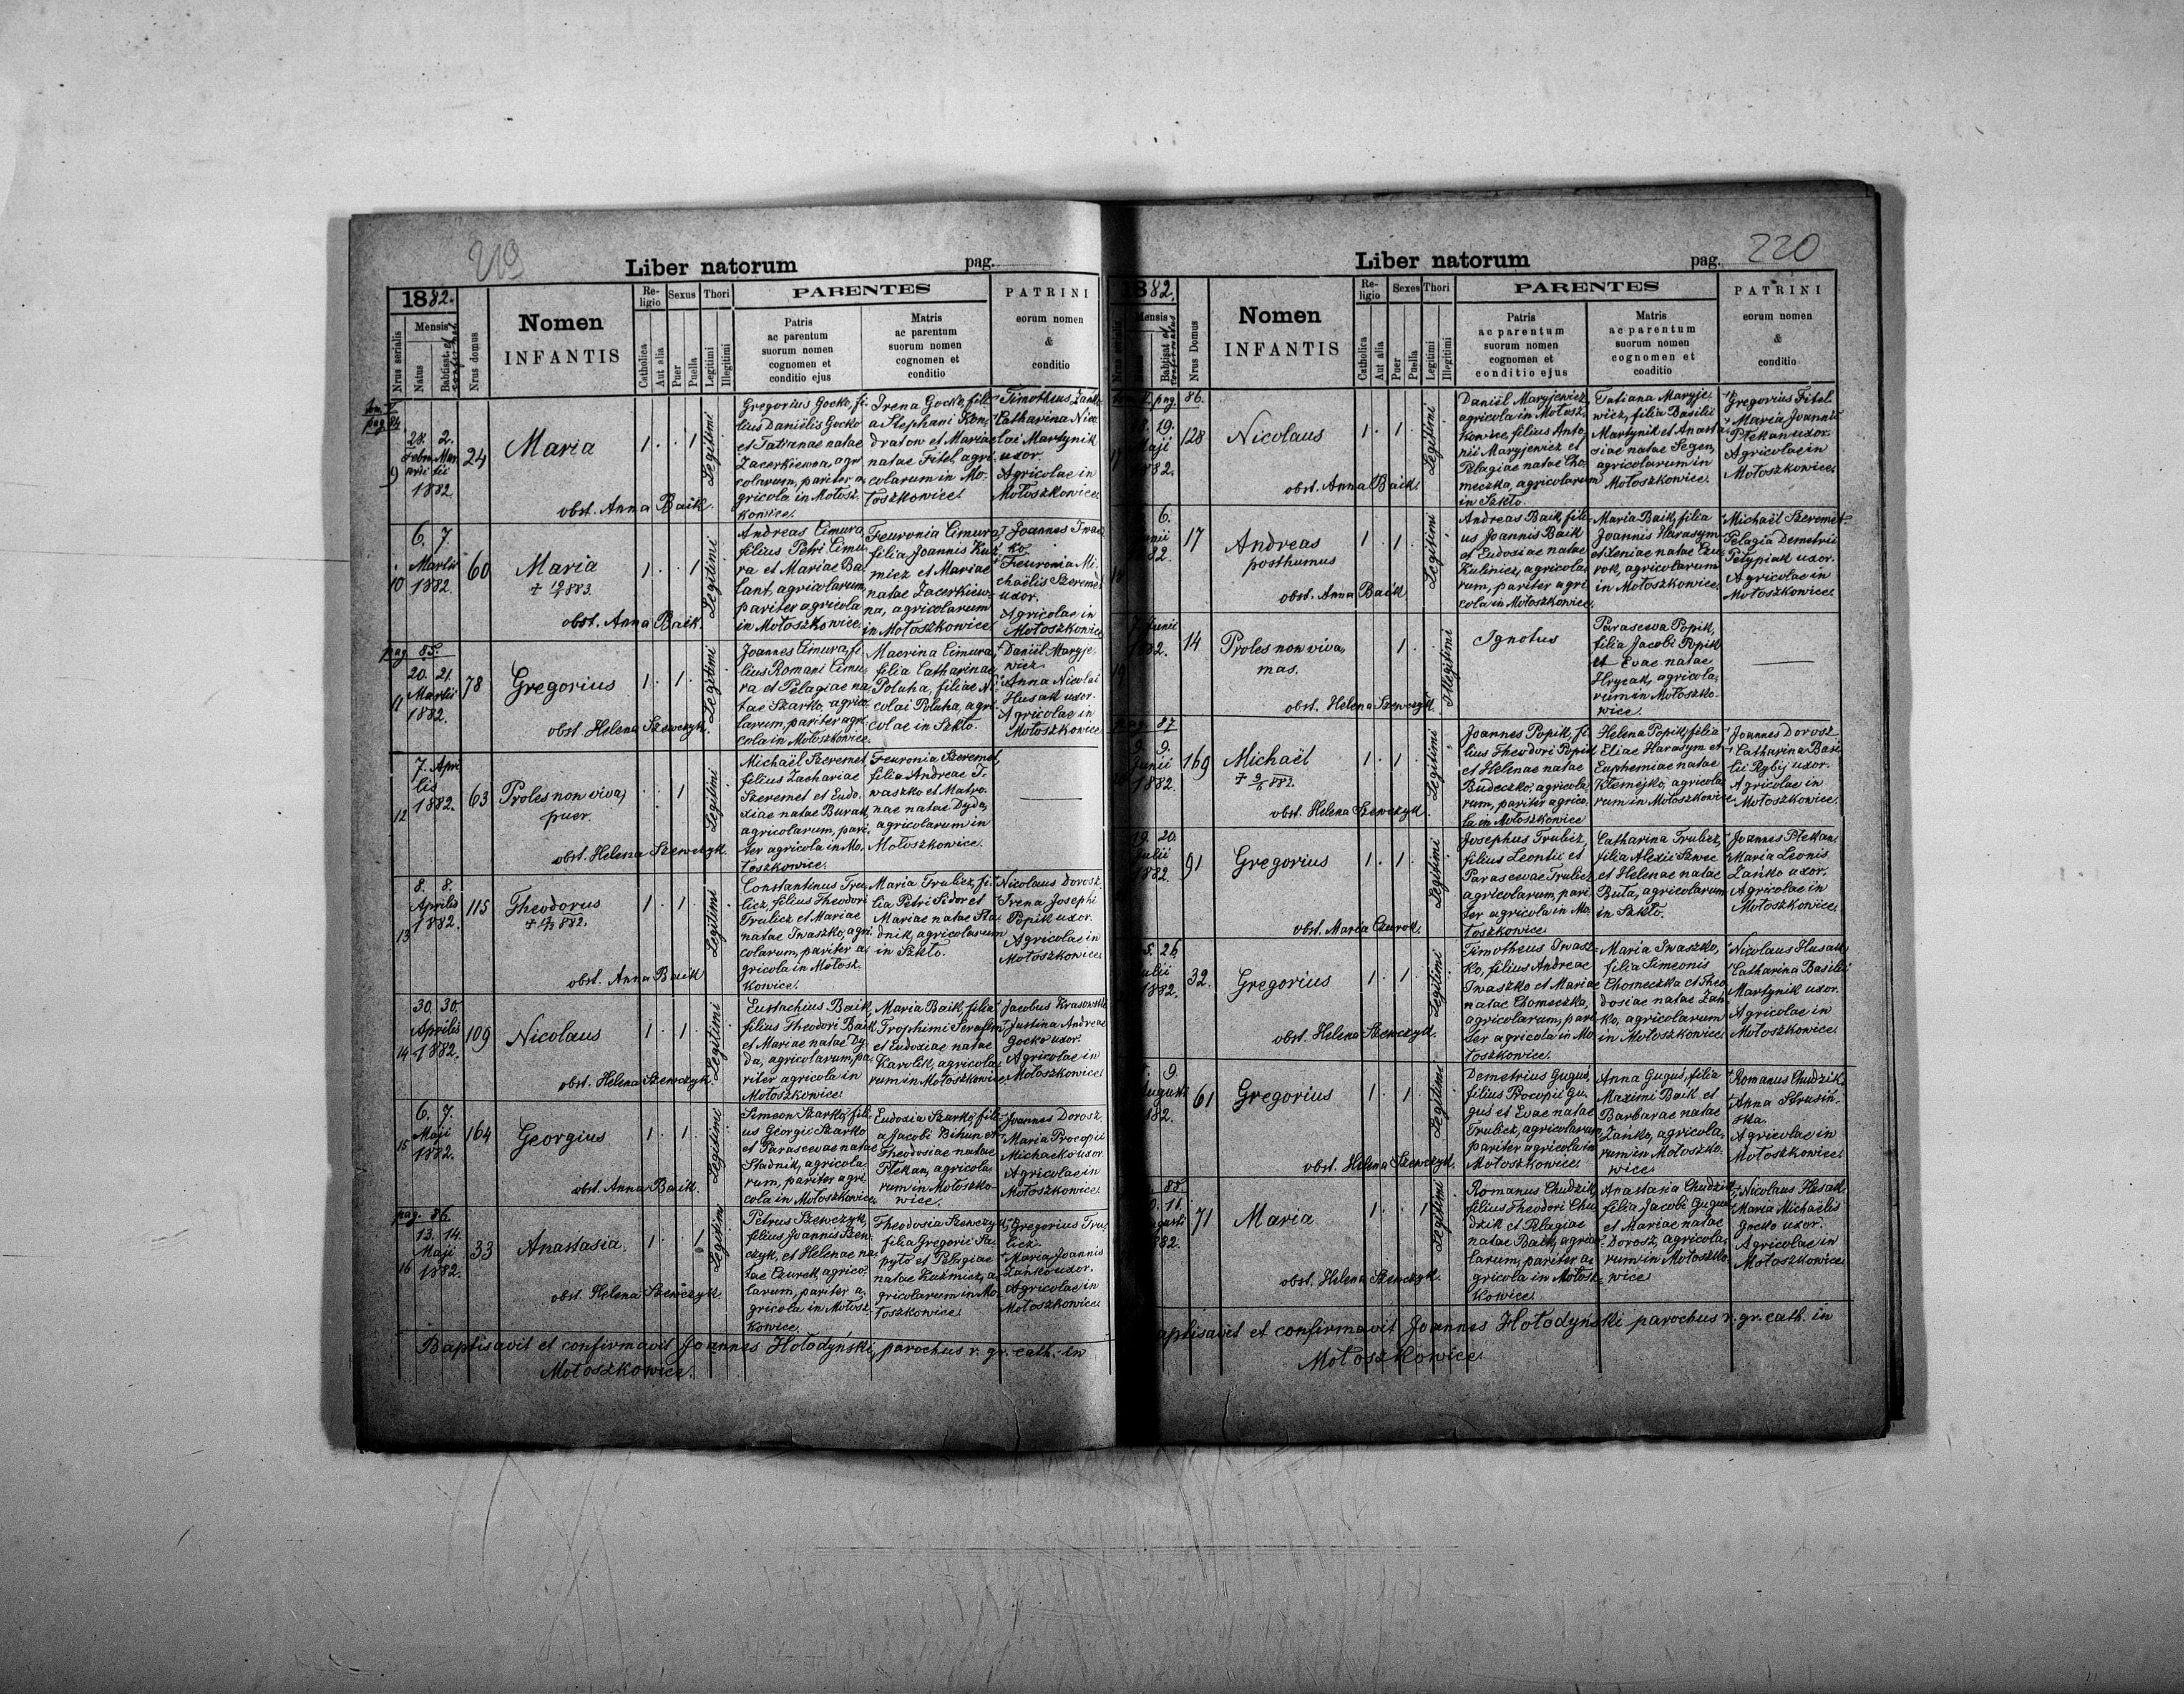 219
Liber natorum pag.
1882.
Nrus serialis
Mensis
Natus
Babtisat et confirmat
Nrus domus
Nomen
INFANTIS
Re-
ligio
Catholica
Aut alia
Sexus
Puer
Puella
Thori
Legitimi
Illegitimi
PARENTES
Patris
ac parentum
suorum nomen
cognomen et
conditio ejus
Matris
ac parentum
suorum nomen
cognomen et
conditio
PATRINI
eorum nomen
&
conditio
tom. V
pag 84
9
28. 2.
Febru Mar
arii tii
1882
24
Maria
obst. Anna Baik.
1 . . 1
Legitimi
Gregorius Gocko, fi-
lius Daniëlis Gocko
et Tatianae natae
Zacerkiewna, agri
colarum, pariter a
gricola in Mołosz
kowice.
Irena Gocko, fili-
a Stephani Kon-
dratow et Mariae
natae Fitel, agri
colarum in Mo-
łoszkowice.
Timotheus Zańko
Catharina Nico
lai Martynik
uxor.
Agricolae in
Mołoszkowice
10
6. 7.
Martii
1882.
60
Maria
obst. Anna Baik.
1 . . 1
Legitimi
Andreas Cimura
filius Petri Cimu
ra et Mariae Ba
lant, agricolarum,
pariter agricola
in Mołoszkowice.
Feuronia Cimura,
filia Joannis Kuź
micz et Mariae
natae Zacerkiew-
na, agricolarum
in Mołoszkowice
Joannes Iwasz
ko.
Feuronia Mi-
chaëlis Szeremet
uxor.
Agricolae in
Mołoszkowice
pag. 85.
11
20. 21.
Martii
1882.
78
Gregorius
obst. Helena Szewczyk.
1 . 1 .
Legitimi
Joannes Cimura, fi-
lius Romani Cimu-
ra et Pelagiae na
tae Szarko, agrico
larum, pariter agri
cola in Mołoszkowice.
Macrina Cimura,
filia Catharinae
Poluha, filiae Ni
colai Poluha, agri
colae in Szkło.
Daniël Maryje
wicz
Anna Nicolai
Husak uxor.
Agricolae in
Mołoszkowice
12
7. Apri
lis
1882.
63
Proles non viva,
puer.
obst. Helena Szewczyk.
. . 1
Legitimi
Michaël Szeremet,
filius Zachariae
Szeremet et Eudo-
xiae natae Burak,
agricolarum, pari-
ter agricola in Mo-
łoszkowice.
Feuronia Szeremet,
filia Andreae I-
waszko et Matro-
nae natae Dyda,
agricolarum in
Mołoszkowice.
13
8. 8.
Aprilis
1882.
115
Theodorus
obst. Anna Baik
1 . 1 .
Legitimi
Constantinus Tru-
licz, filius Theodori
Trulicz et Mariae
natae Iwaszko, agri
colarum, pariter a
gricola in Mołosz
kowice.
Maria Trulicz, fi-
lia Petri Sidor et
Mariae natae Sta
dnik, agricolarum
in Szkło.
Nicolaus Dorosz
Irena Josephi
Popik uxor.
Agricolae in
Mołoszkowice
14
30. 30.
Aprilis
1882.
109
Nicolaus
obst. Helena Szewczyk.
1 . 1 .
Legitimi
Eustachius Baik,
filius Theodori Baik
et Mariae natae Dy
da, agricolarum, pa-
riter agricola in
Mołoszkowice
Maria Baik, filia
Trophimi Serafim
et Eudoxiae natae
Karolik, agricola-
rum in Mołoszkowice
Jacobus Krasowski
Justina Andreae
Gocko uxor.
Agricolae in
Mołoszkowice
15
6. 7.
Maji
1882.
164
Georgius
obst. Anna Baik.
1 . 1 .
Legitimi
Simeon Szarko, fili
us Georgii Szarko
et Parascewae natae
Stadnik, agricola-
rum, pariter agri
cola in Mołoszkowice
Eudoxia Szarko, fili
a Jacobi Bihun et
Theodosiae natae
Płekan, agricola-
rum in Mołoszko-
wice.
Joannes Dorosz.
Maria Procopii
Michacko uxor.
Agricolae in
Mołoszkowice
pag. 86.
16
13. 14.
Maji
1882.
33
Anastasia.
obst. Helena Szewczyk
1 . . 1
Legitimi
Petrus Szewczyk,
filius Joannis Szew
czyk, et Helenae na
tae Czurok agrico
larum, pariter a-
gricola in Mołosz
kowice.
Theodosia Szewczyk,
filia Gregorii Sa-
pyto et Pelagiae
natae Kuźmicz, a
gricolarum in Mo
łoszkowice.
Gregorius Tru
licz.
Maria Joannis
Zańko uxor.
Agricolae in
Mołoszkowice
Baptisavit et confirmavit Joannes Hołodyński, parochus r. gr. cath. in
Mołoszkowice.
220
Liber natorum pag.
1882.
Mensis
Babtisat et confirmatus
Nrus Domus
Nomen
INFANTIS
Re-
ligio
Catholica
Aut alia
Sexes
Puer
Puella
Thori
Legitimi
Illegitimi
PARENTES
Patris
ac parentum
suorum nomen
cognomen et
conditio ejus
Matris
ac parentum
suorum nomen
cognomen et
conditio
PATRINI
eorum nomen
&
conditio
pag. 86.
19.
Maji
1882.
128
Nicolaus
obst. Anna Baik.
1 . 1 .
Legitimi
Daniël Maryjewicz,
agricola in Mołosz
kowice, filius Anto
nii Maryjewicz et
Pelagiae natae Cho
meczka, agricolarum
in Szkło.
Tatiana Maryje
wicz, filia Basilii
Martynik et Anasta
siae natae Segen,
agricolarum in
Mołoszkowice.
Gregorius Fitel.
Maria Joannis
Płekan uxor.
Agricolae in
Mołoszkowice.
6.
17
Andreas
posthumus
obst. Anna Baik
1 . 1 .
Legitimi
Andreas Baik, fili
us Joannis Baik
et Eudoxiae natae
Kulinicz, agricola
rum, pariter agri
cola in Mołoszkowice.
Maria Baik, filia
Joannis Harasym
et Xeniae natae Czu
rok, agricolarum
in Mołoszkowice.
Michaël Szeremet
Pelagia Demetrii
Petypiak uxor.
Agricolae in
Mołoszkowice.
Junii
14
Proles non viva,
mas.
obst. Helena Szewczyk.
1 .
Illegitimi
Ignotus
Parascewa Popik,
filia Jacobi Popik
et Evae natae
Hrycak, agricola-
rum in Mołoszko-
wice.
pag. 87
9. 9.
Junii
1882.
169
Michaël
obst. Helena Szewczyk
1 . 1 .
Legitimi
Joannes Popik, fi-
lius Theodori Popik
et Helenae natae
Budeczko, agricola-
rum, pariter agrico-
la in Mołoszkowice
Helena Popik, filia
Eliae Harasym et
Euphemiae natae
Klemejko, agricola
rum in Mołoszkowice
Joannes Dorosz
Catharina Basi
lii Rybij uxor.
Agricolae in
Mołoszkowice.
19. 20.
Julii
1882.
91
Gregorius
obst. Maria Czurok.
1 . 1 .
Legitimi
Josephus Trulicz,
filius Leontii et
Parascewae Trulicz,
agricolarum, pari-
ter agricola in Mo-
łoszkowice
Catharina Trulicz,
filia Alexii Szwec
et Helenae natae
Buta, agricolarum
in Szkło.
Joannes Płekan.
Maria Leonis
Zańko uxor.
Agricolae in
Mołoszkowice
26
Julii
1882.
32.
Gregorius
obst. Helena Szewczyk.
1 . 1 .
Legitimi
Timotheus Iwasz
ko, filius Andreae
Iwaszko et Mariae
natae Chomeczka,
agricolarum, pari-
ter agricola in Mo
łoszkowice.
Maria Iwaszko,
filia Simeonis
Chomeczka et Theo
dosiae natae Zań-
ko, agricolarum
in Mołoszkowice
Nicolaus Husak
Catharina Basilii
Martynik uxor.
Agricolae in
Mołoszkowice.
9.
61
Gregorius
obst. Helena Szewczyk.
1 . 1 .
Legitimi
Demetrius Guguś,
filius Procopii Gu-
guś et Evae natae
Trulicz, agricolarum,
pariter agricola in
Mołoszkowice.
Anna Guguś, filia
Maximi Baik et
Barbarae natae
Zańko, agricola-
rum in Mołoszko-
wice.
Romanus Chudzik,
Anna Strusiń-
ska.
Agricolae in
Mołoszkowice.
11.
71
Maria
obst. Helena Szewczyk.
1 . . 1
Legitimi
Romanus Chudzik,
filius Theodori Chu
dzik et Pelagiae
natae Baik, agrico
larum, pariter a-
gricola in Mołosz
kowice.
Anastasia Chudzik,
filia Jacobi Guguś
et Mariae natae
Dorosz, agricola-
rum in Mołoszko
wice
Nicolaus Husak.
Maria Michaëlis
Gocko uxor.
Agricolae in
Mołoszkowice
Baptisavit et confirmavit Joannes Hołodyński parochus r. gr. cath. in
Mołoszkowice.